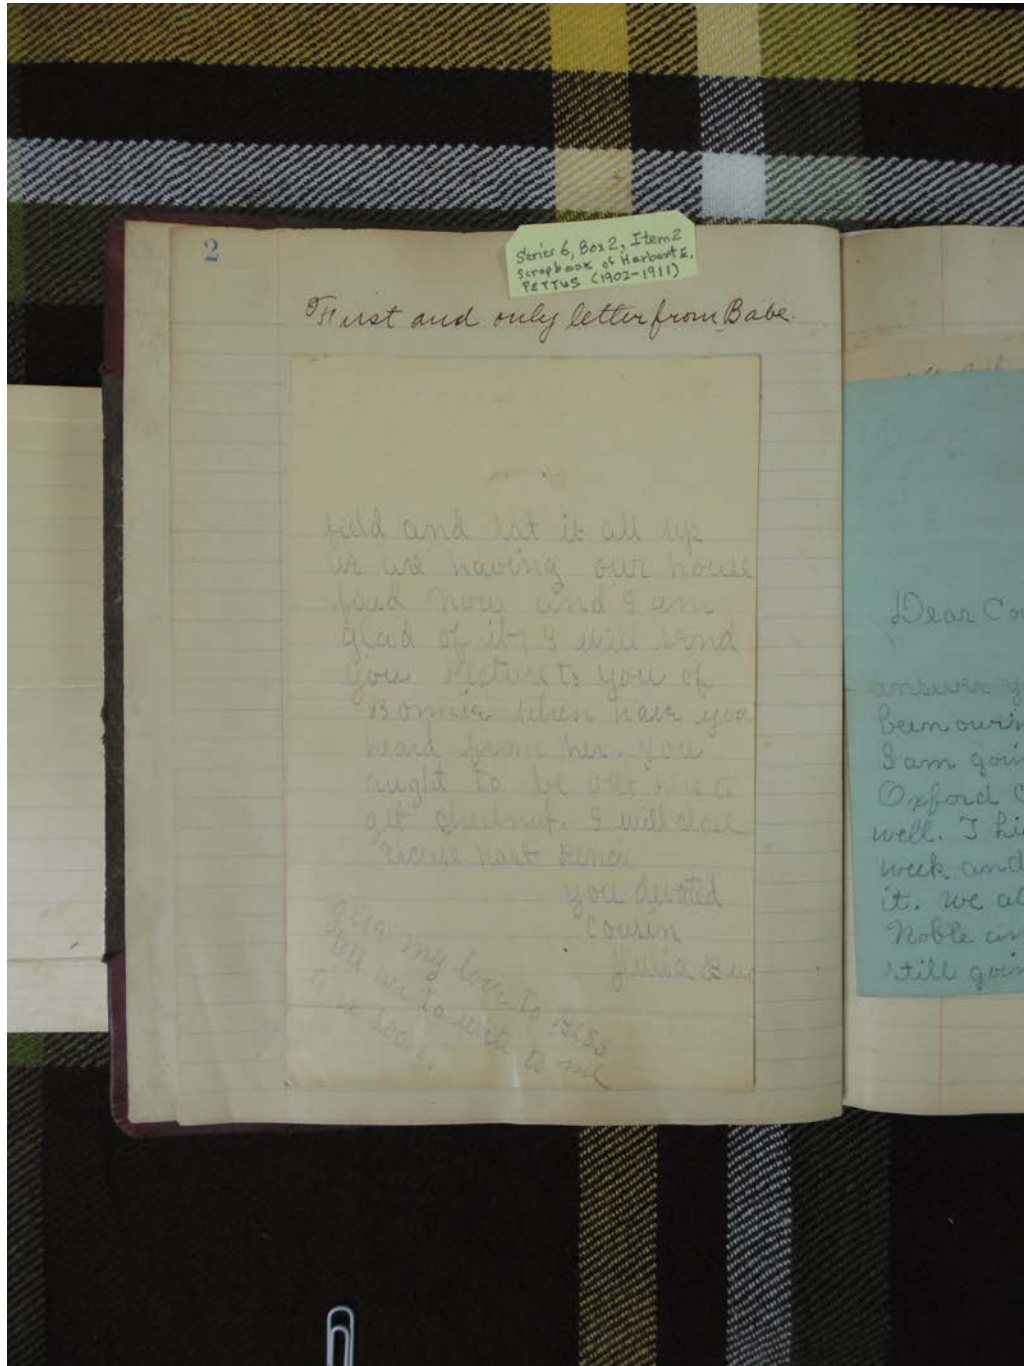 2
Series 6, Box 2, Item 2
Scrapbook of Herbert E.
PETTUS (1902-1911)
First and only letter from Babe.
and eat it all up
are having our house
now and I am
glad of it, I will send
you Picture to you of
Bonnie when have you
heard from her. you
aught to be out here to
get chestnut. I will close
you devoted
cousin
Julia
give my love to
tell her to write to me
Dear
answer
been
I am
Oxford
well. I
week and
it. we
Noble
still